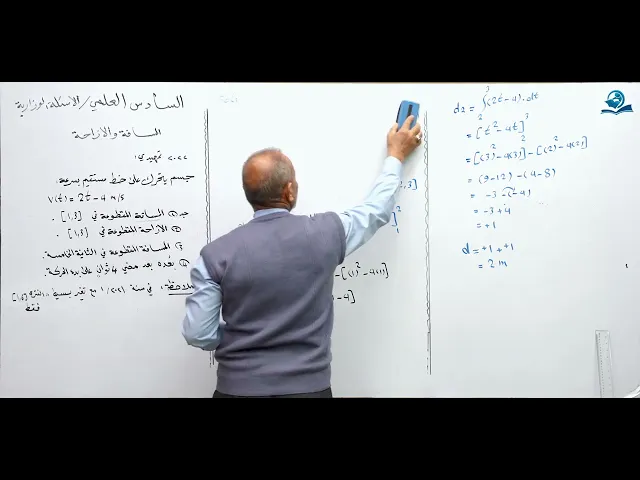 السادس العلمي / الأسئلة الوزارية
المسافة والازاحة
٢٠٢٢ تمهيدي:
جسم يتحرك على خط مستقيم بسرعة
V(t) = 2t - 4 m/s
جد ① المسافة المقطوعة في [1,3].
② الازاحة المقطوعة في [1,3].
③ المسافة المقطوعة في الثانية الخامسة.
④ بُعده بعد مضي 4 ثواني على بدء الحركة.
ملاحظة: في سنة ٢٠٢١/١ مع تغير بسيط
فقط
,3]
]²
1
- [(1)² - 4(1)]
- 4]
d2 = ∫₂³ (2t - 4) . dt
= [t² - 4t]₂³
= [(3)² - 4(3)] - [(2)² - 4(2)]
= (9 - 12) - (4 - 8)
= -3 - (-4)
= -3 + 4
= +1
d = +1 + +1
= 2 m